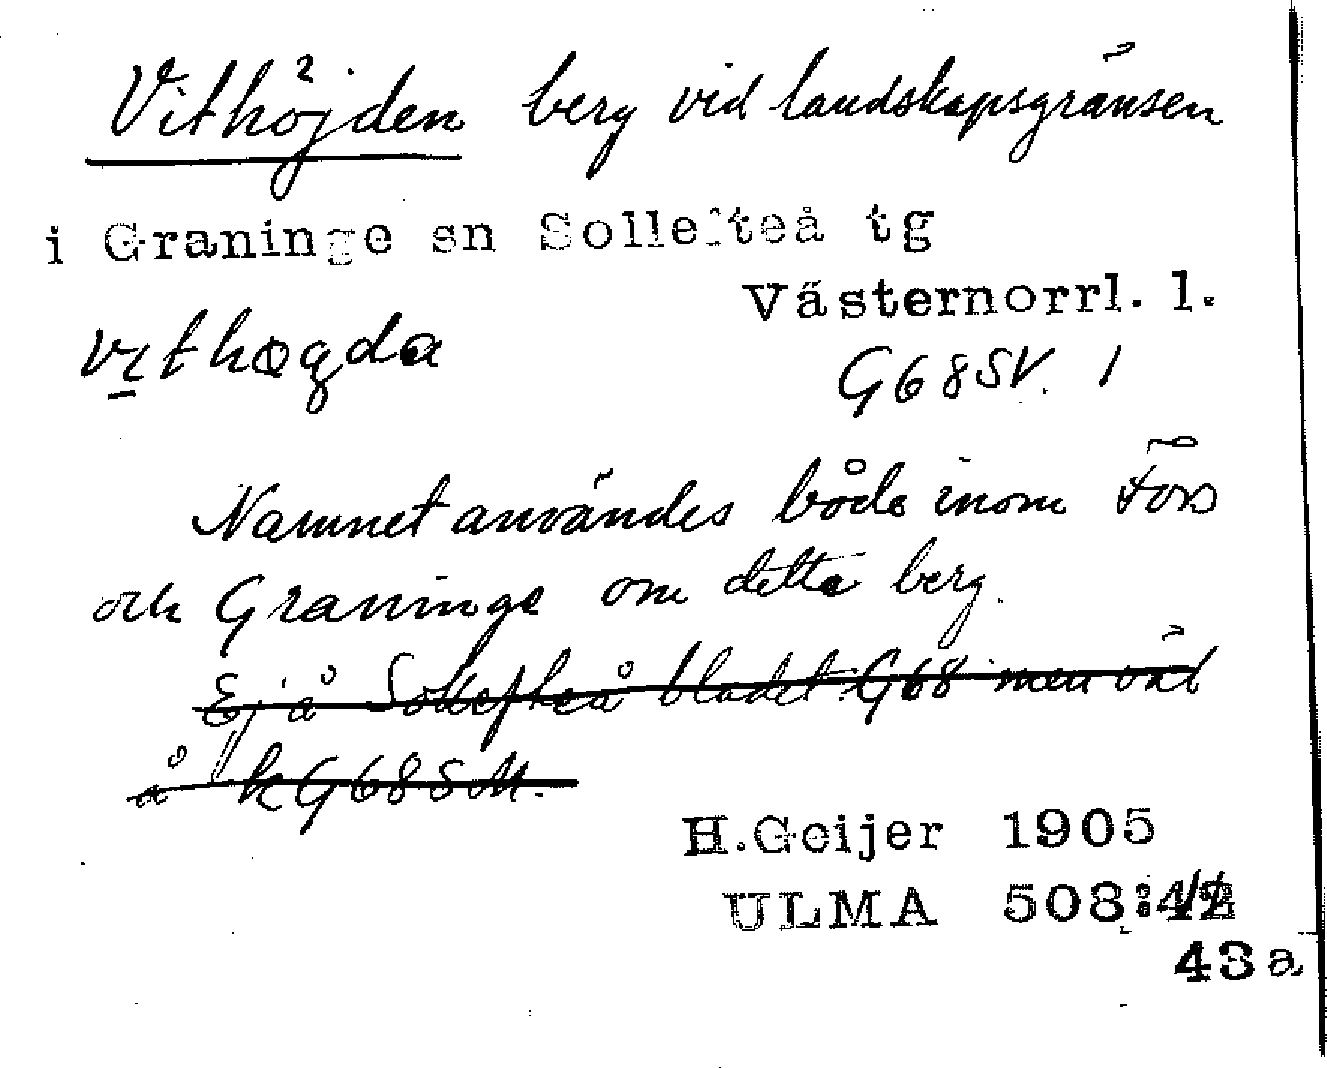 Vithöjden berg vid landskapsgränsen
i Graninge sn Sollefteå tg
Västernorrl. l.
vıthøgda
G68SV. 1
Namnet användes både inom Fors
och Graninge om detta berg.
Ej å Sollefteå bladet G68 men väl
å k G68
H.Geijer 1905
ULMA 508:
43a